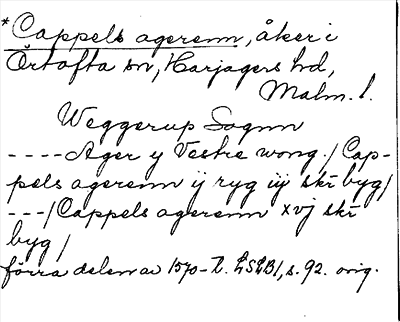 *Cappels agerenn, åker i
Örtofta sn, Harjagers hd,
Malm. l.
Weggerup Sognn
----Ager y Vestre wong./Cap-
pels agerenn ij ryg iij skr byg/
---/Cappels agerenn xvj skr
byg/
förra delen av 1570-t. LSLB1, s. 92. orig.